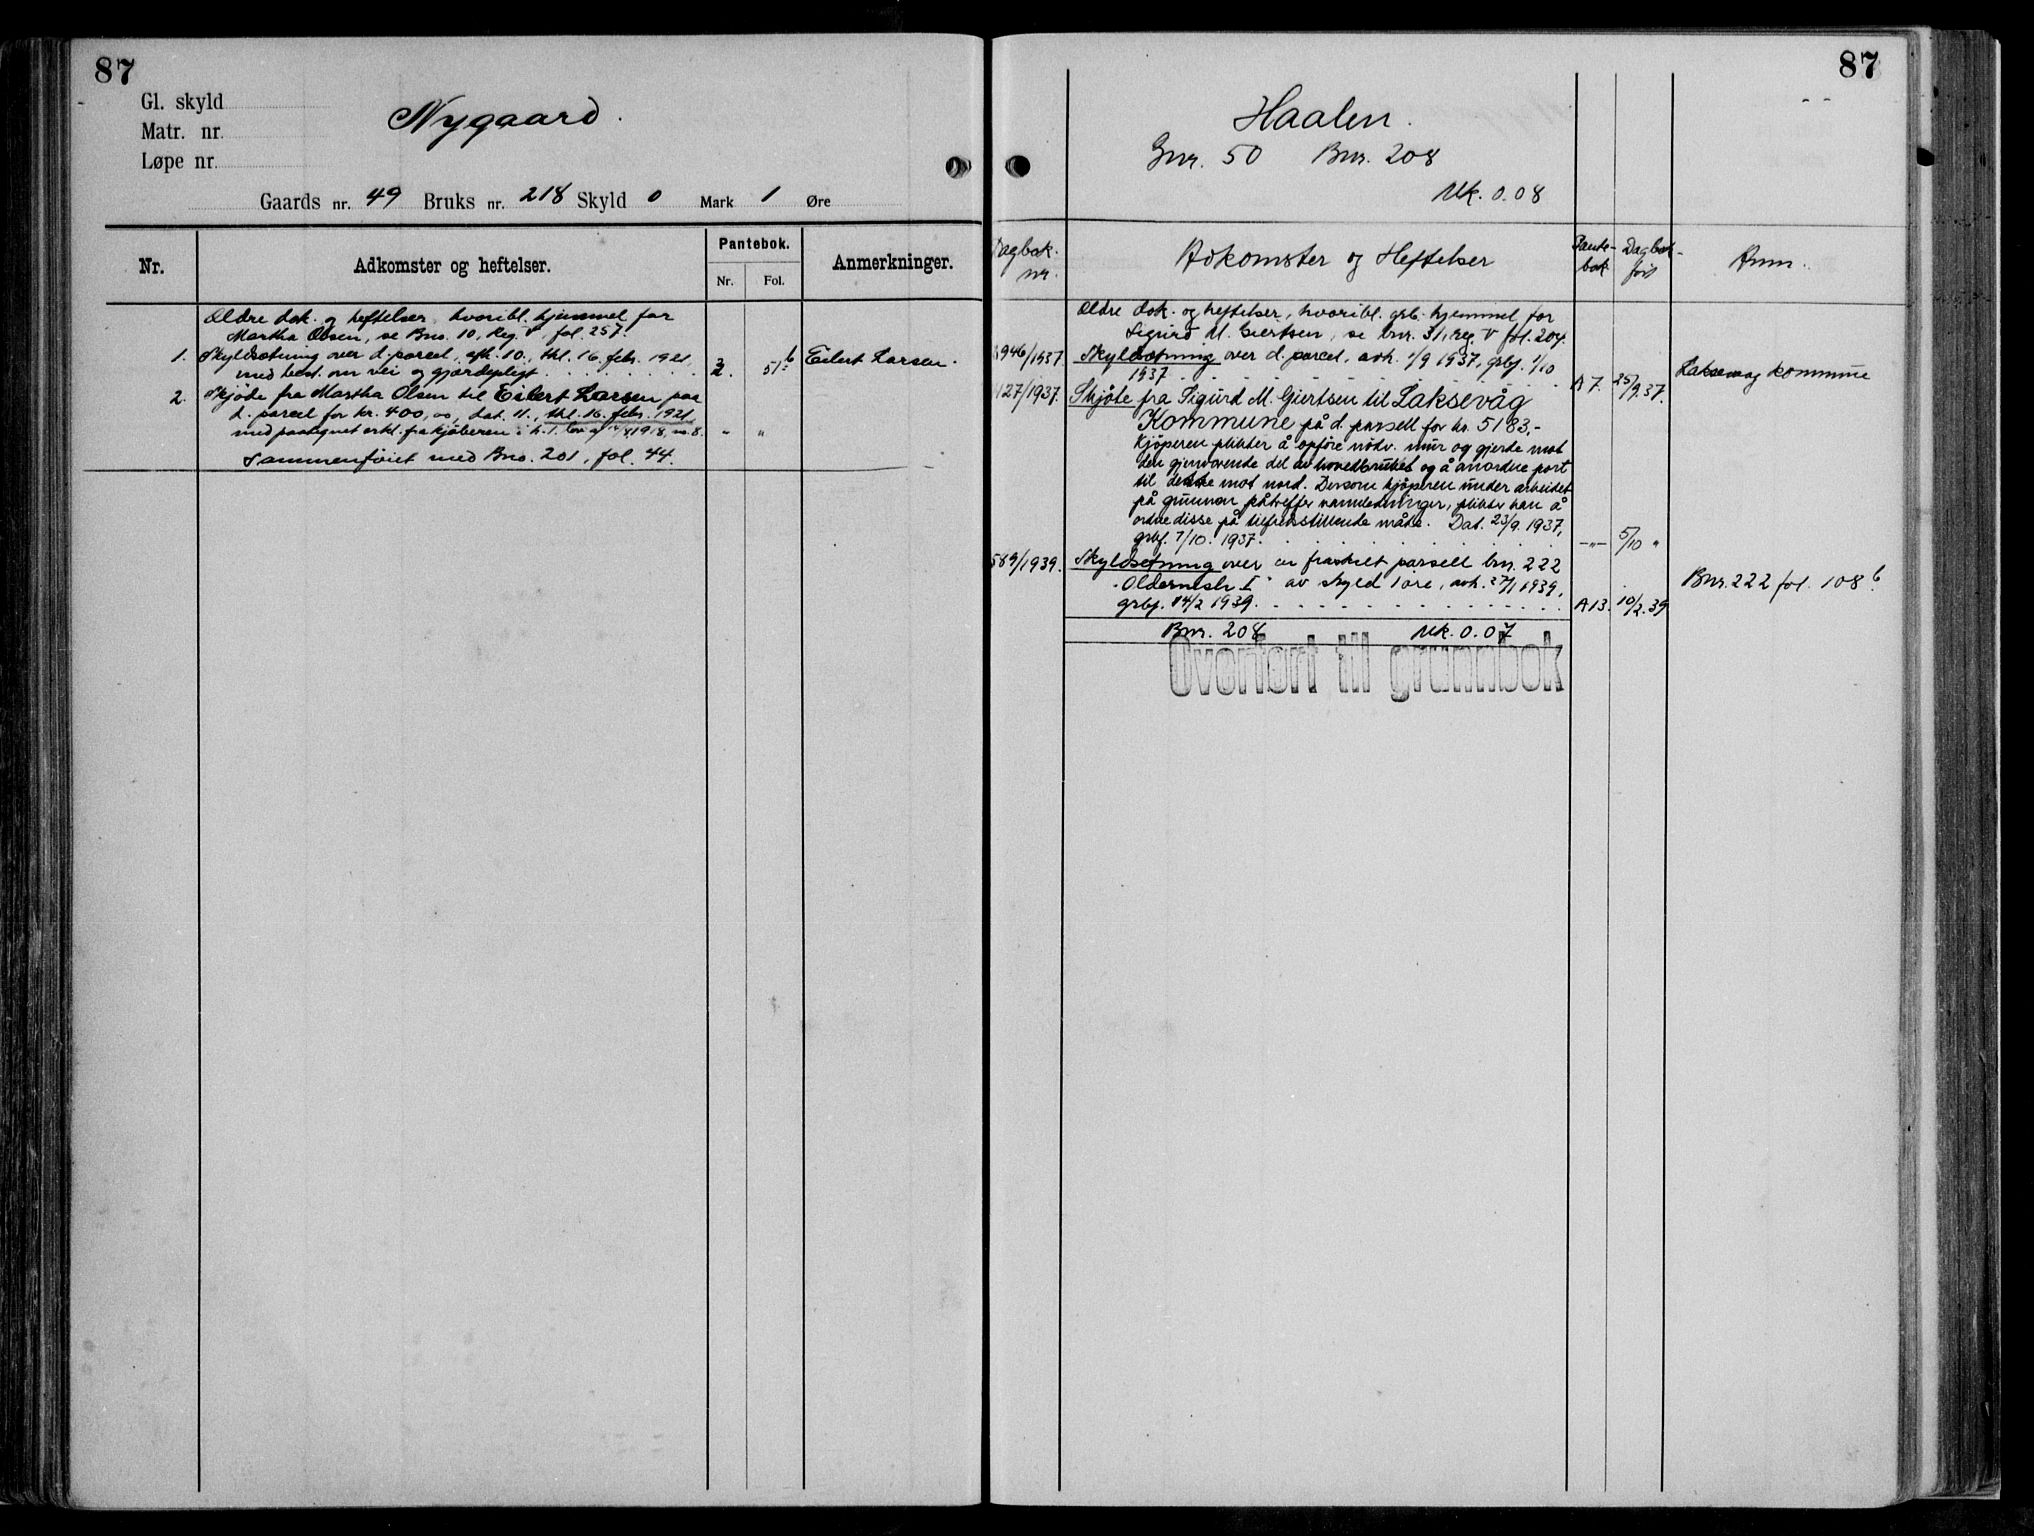 87
Gl. skyld
Matr. nr.
Løpe nr.
Nygaard.
Gaards nr. 49 Bruks nr. 218 Skyld 0 Mark 1 Øre
Nr.
Adkomster og heftelser.
Pantebok.
Nr. Fol.
Anmerkninger.
Ældre dok. og heftelser, hvoribl. hjemmel for
Martha Olsen, se Bno. 10, Reg. V, fol. 257.
1. Skyldsætning over d. parcel, afh. 10., thl. 16. febr. 1921,
med best. om vei og gjærdepligt 2. 51b Eilert Larsen.
2. Skjøde fra Martha Olsen til Eilert Larsen paa
d. parcel for kr. 400,00, dat. 11., thl. 16. febr. 1921
med paategnet erkl. fra kjøberen i h. t. lov af 1918, no. 8. " "
Sammenføiet med Bno. 201, fol. 44.
87
Haalen.
Gnr. 50 Bnr. 208
Mk. 0.08
Dagbok. nr.
Adkomster og Heftelser
Pante-bok
Dagbok-ført
Anm.
Ældre dok. og heftelser, hvoribl. grb. hjemmel for
Sigurd M. Giertsen, se bnr. 31, reg. V fol. 204.
946/1937 Skyldsetning over d. parcel, avh. 1/9 1937, grbf. 1/10
1937 A 7. 25/9.37. Laksevag kommune
127/1937. Skjøte fra Sigurd M. Giertsen til Laksevåg
Kommune på d. parsell for kr. 5183,-
Kjøperen plikter å opføre nødv. mur og gjerde mot
den gjenværende del av hovedbruket og å anordne port
til dette mot nord. Dersom kjøperen under arbeidet
på grunnen påtreffer vannledninger, plikter han å
ordne disse på tilfredsstillende måte. Dat. 23/9 1937,
grbf. 7/10. 1937. -"- 5/10 "
589/1939. Skyldsetning over en fraskilt parsell bnr. 222
I" av skyld 1 øre, avh. 27/1 1939, Bnr. 222 fol. 108b
grbf. 14/2 1939. A 13. 10/2.39
Bnr. 208 Mk. 0.07
Overført til grunnbok